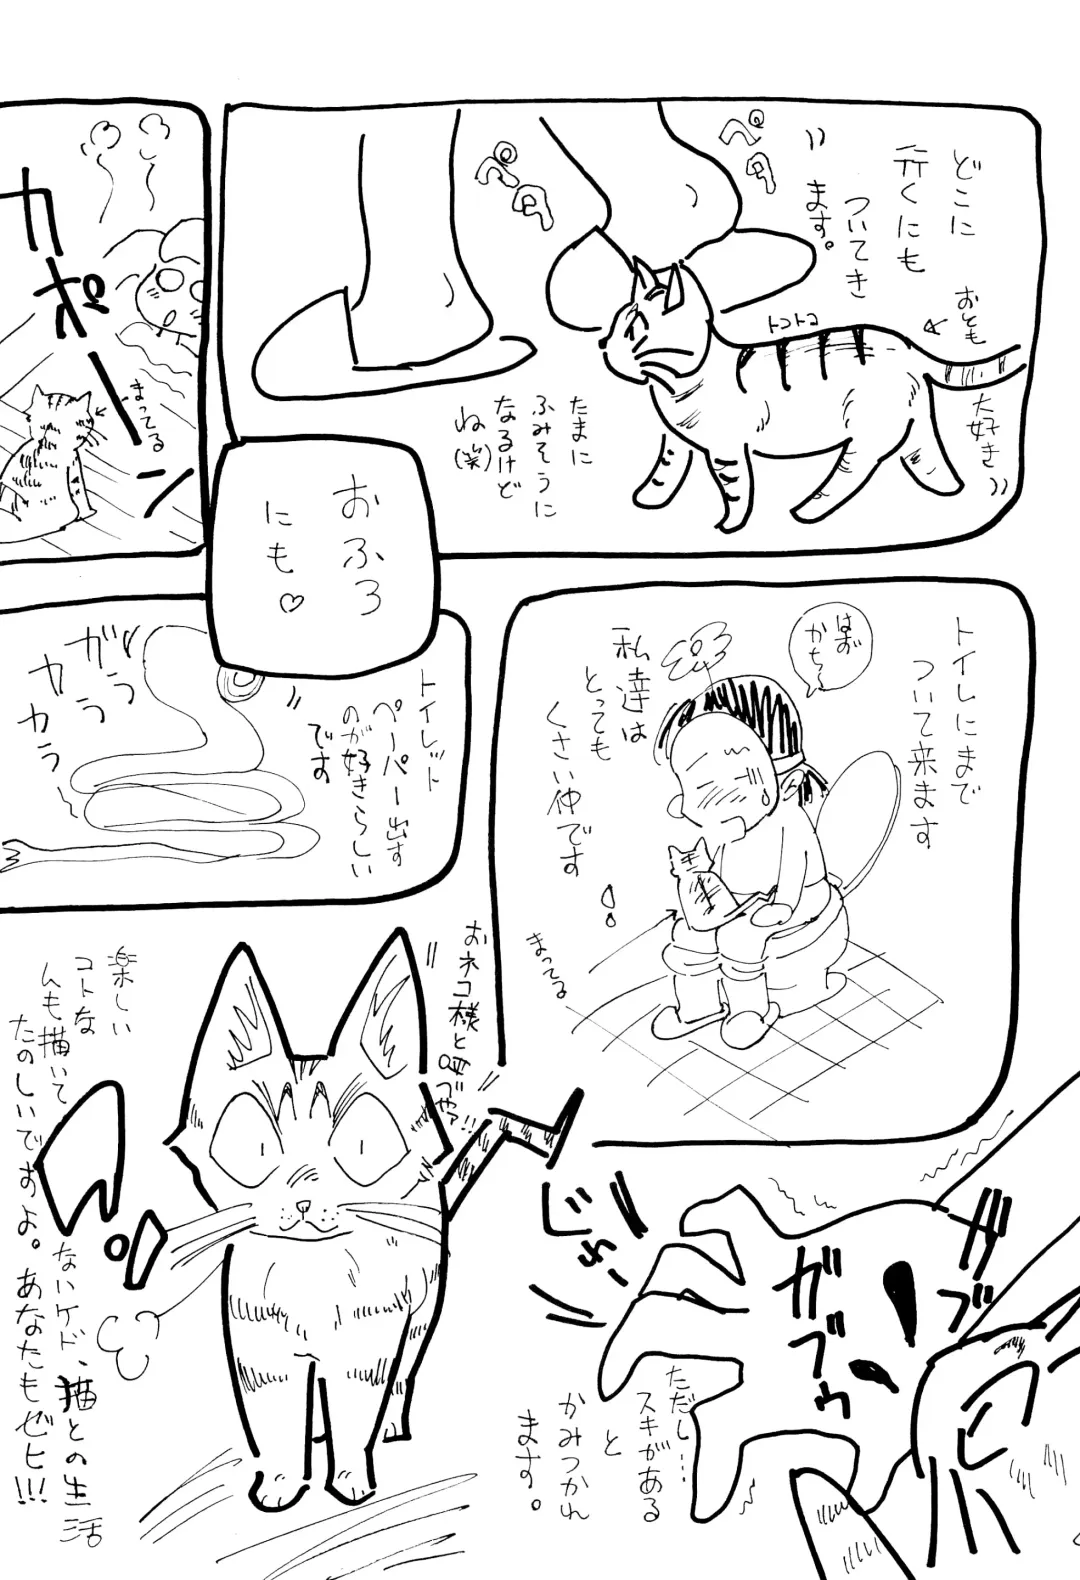 どこに
行くにも
ついてき
ます。
ペタ
ペタ
おとも
大好き
トコトコ
たまに
ふみそうに
なるけど
ね(笑)
おふろ
にも♡
カポーン
まってる
トイレにまで
ついて来ます
はお
かちゃん
私達は
とっても
くさい仲です
!
まってる
トイレット
ペーパー出す
のが好きらしい
です
ガラ
カラ
カラ
ガブ
ガブゥ
!
ただし…
スキがある
と
かみつかれ
ます。
おネコ様と
呼べや!!
楽しい
コトな
んも描いて
ないケド、猫との生活
たのしいですよ。あなたもぜヒ!!!